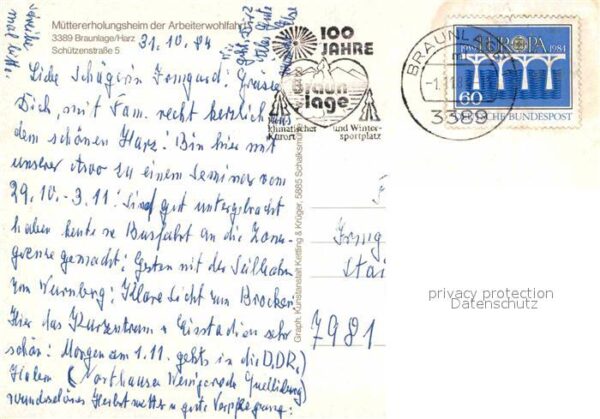 Müttererholungsheim der Arbeiterwohlfahrt
3389 Braunlage/Harz
Schützenstraße 5
31.10.84
Liebe Schägerin Irmgard! Grüsse
Dich, mit Fam. recht herzlich
dem schönen Harz! Bin hier mit
unserer Awo zu einem Seminar vom
29.10.-3.11! Sind gut untergebracht
haben heute ne Busfahrt an die Zonen-
grenze gemacht; Gestern mit der Seilbahn
zum Wurmberg; Klare Sicht zum Brocken!
Hier das Kurzentrum + Eisstadion sehr
schön! Morgen am 1.11. gehts in die D.D.R.
(Northausen Wernigerode Quedlinburg)
wunderschönes Herbstwetter u. gute Verpflegung!
Graph. Kunstanstalt Kettling & Krüger, 5885 Schalksmühle
100
JAHRE
Braun
lage
heilklimatischer und Winter-
Kurort sportplatz
BRAUNLAGE
3389
1959 EUROPA 1984
60
DEUTSCHE BUNDESPOST
7981
privacy protection
Datenschutz